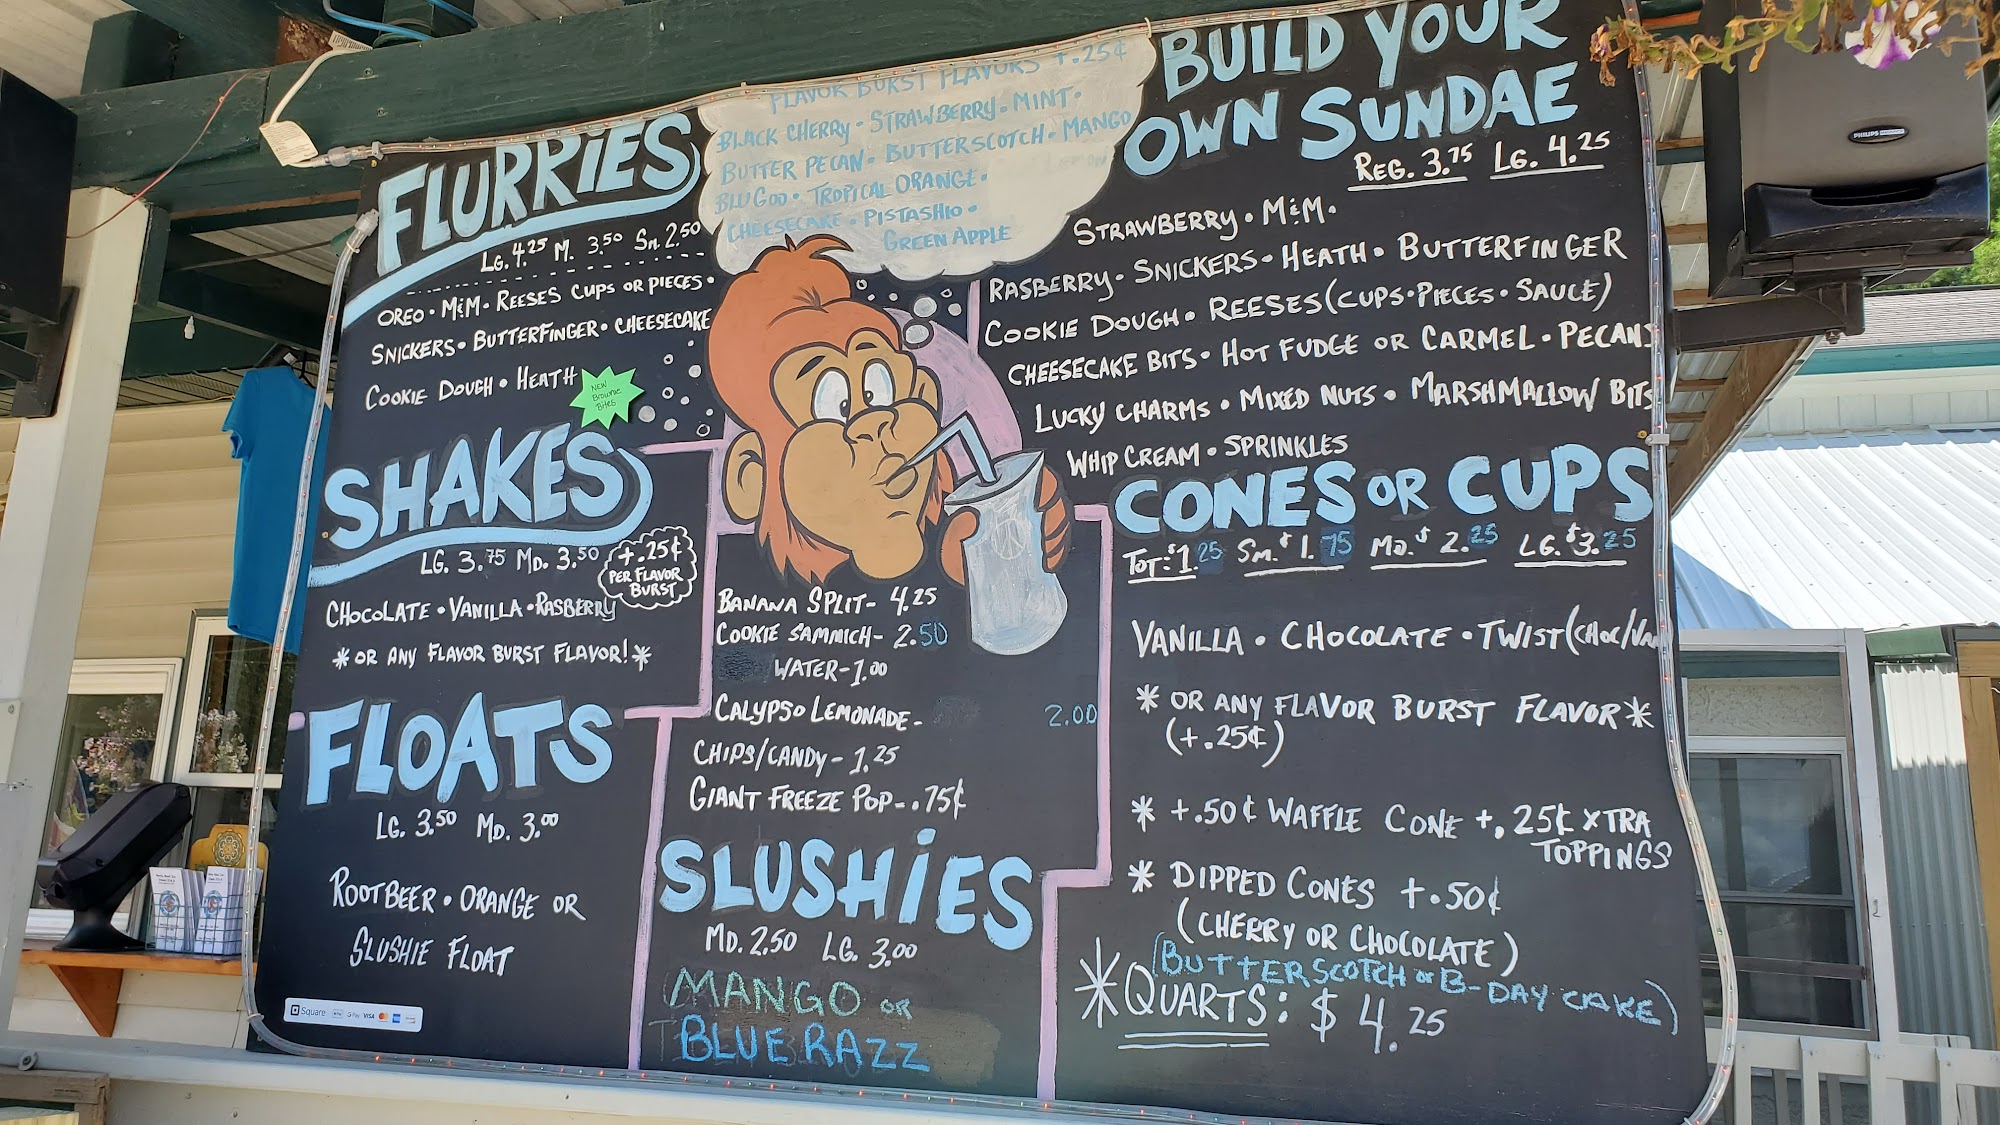 FLURRIES
LG. 4.25 M. 3.50 SM 2.50
OREO • M&M • REESES CUPS OR PIECES •
SNICKERS • BUTTERFINGER • CHEESECAKE
COOKIE DOUGH • HEATH
NEW
Brownie
Bites
SHAKES
LG. 3.75 MD. 3.50
+.25¢
PER FLAVOR
BURST
CHOCOLATE • VANILLA • RASBERRY
* OR ANY FLAVOR BURST FLAVOR! *
FLOATS
LG. 3.50 MD. 3.00
ROOTBEER • ORANGE OR
SLUSHIE FLOAT
Square G Pay VISA
FLAVOR BURST FLAVORS +.25¢
BLACK CHERRY • STRAWBERRY • MINT •
BUTTER PECAN • BUTTERSCOTCH • MANGO
BLU GOO • TROPICAL ORANGE •
CHEESECAKE • PISTASHIO •
GREEN APPLE
BANANA SPLIT - 4.25
COOKIE SAMMICH - 2.50
WATER - 1.00
CALYPSO LEMONADE - 2.00
CHIPS/CANDY - 1.25
GIANT FREEZE POP - .75¢
SLUSHIES
MD. 2.50 LG. 3.00
MANGO OR
BLUE RAZZ
BUILD YOUR
OWN SUNDAE
REG. 3.75 LG. 4.25
STRAWBERRY • M&M •
RASBERRY • SNICKERS • HEATH • BUTTERFINGER
COOKIE DOUGH • REESES (CUPS • PIECES • SAUCE)
CHEESECAKE BITS • HOT FUDGE OR CARMEL • PECANS
LUCKY CHARMS • MIXED NUTS • MARSHMALLOW BITS
WHIP CREAM • SPRINKLES
CONES OR CUPS
TOT: $1.25 SM. $1.75 MD. $2.25 LG. $3.25
VANILLA • CHOCOLATE • TWIST (CHOC/VAN
* OR ANY FLAVOR BURST FLAVOR *
(+.25¢)
* +.50¢ WAFFLE CONE +.25¢ XTRA
TOPPINGS
* DIPPED CONES +.50¢
(CHERRY OR CHOCOLATE)
(BUTTERSCOTCH or B-DAY CAKE)
* QUARTS: $4.25
PHILIPS